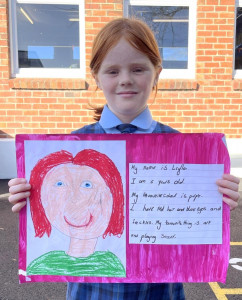 My name is Layla.
I am 6 years old.
My favourite food is pizza.
I have red hair and blue eyes and
freckles. My favourite thing is art
and playing